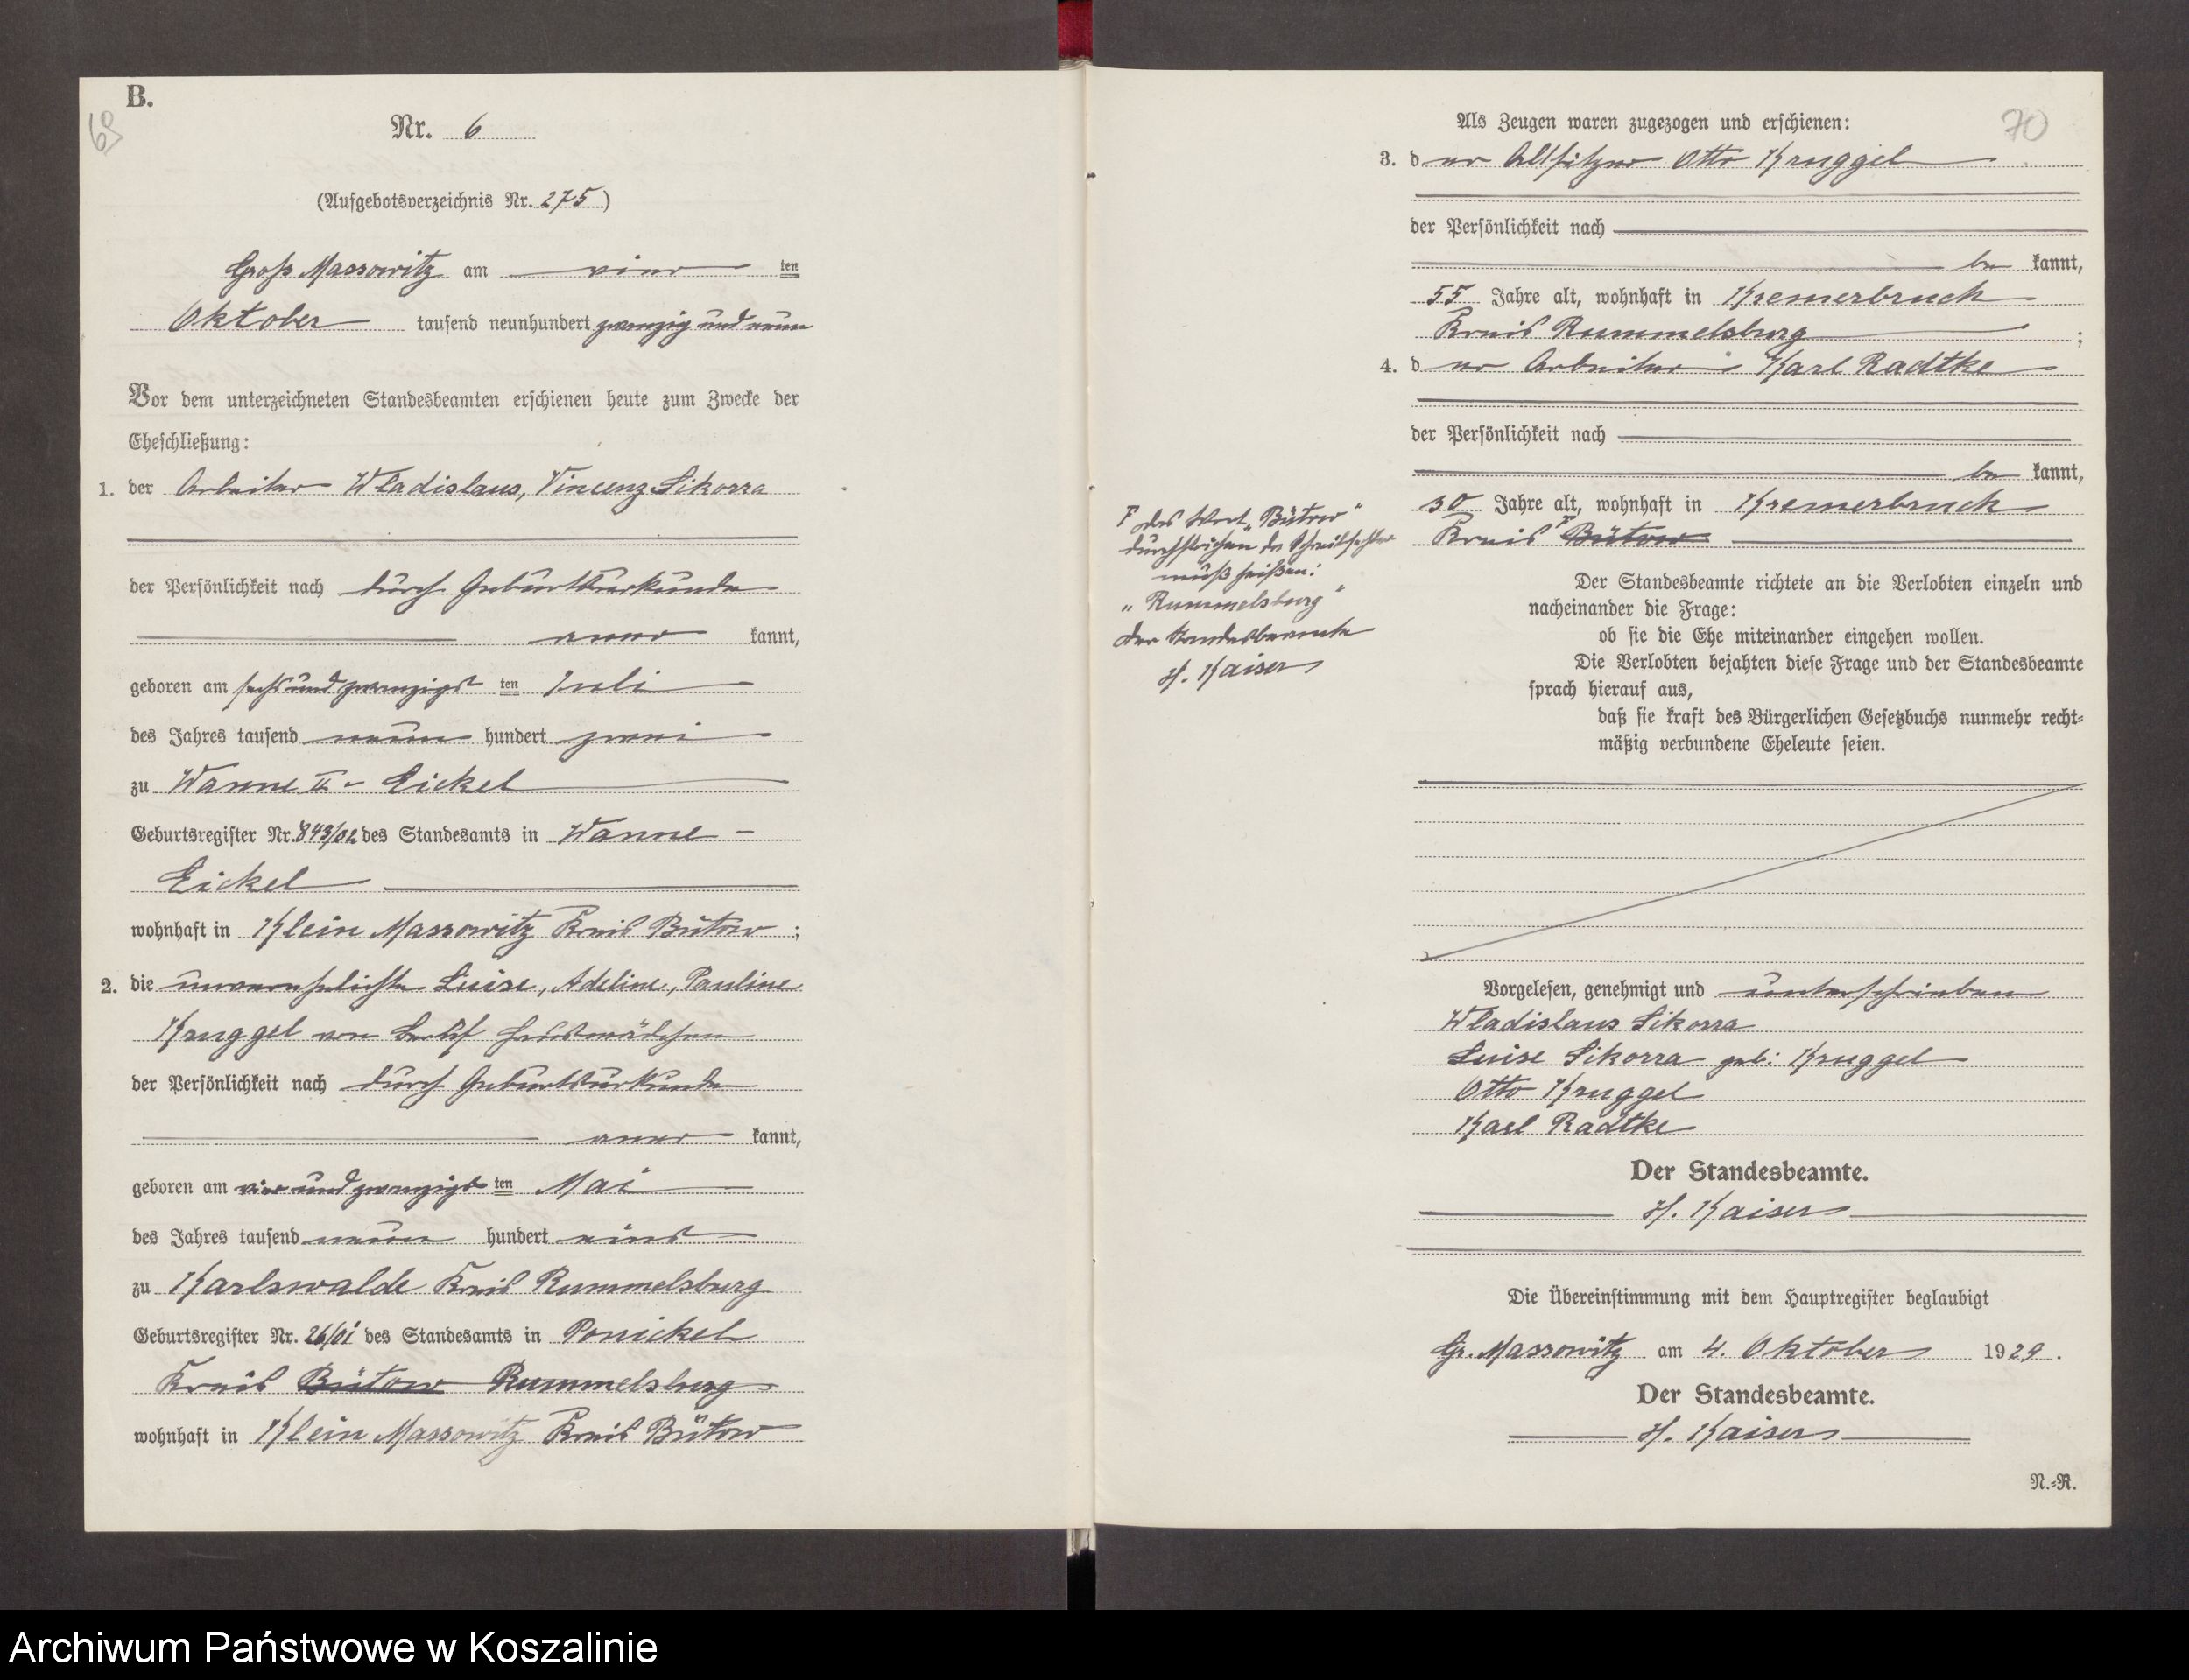 B.
69
Nr. 6
(Aufgebotsverzeichnis Nr. 275)
Groß Massowitz am vier ten
Oktober tausend neunhundert zwanzig und neun
Vor dem unterzeichneten Standesbeamten erschienen heute zum Zwecke der
Eheschließung:
1. der Arbeiter Wladislaus, Vincenz Sikorra
der Persönlichkeit nach durch Geburtsurkunde
aner kannt,
geboren am sechsundzwanzigst ten Juli
des Jahres tausend neun hundert zwei
zu Wanne II - Eickel
Geburtsregister Nr. 843/02 des Standesamts in Wanne -
Eickel
wohnhaft in Klein Massowitz Kreis Bütow ;
2. die unverehelichte Luise, Adeline, Pauline
Kruggel von Beruf Hausmädchen
der Persönlichkeit nach durch Geburtsurkunde
aner kannt,
geboren am vierundzwanzigst ten Mai
des Jahres tausend neun hundert eins
zu Karlswalde Kreis Rummelsburg
Geburtsregister Nr. 26/01 des Standesamts in Ponickel
Kreis Bütow Rummelsburg
wohnhaft in Klein Massowitz Kreis Bütow
70
Als Zeugen waren zugezogen und erschienen:
3. d er Altsitzer Otto Kruggel
der Persönlichkeit nach
be kannt,
55 Jahre alt, wohnhaft in Kremerbruck
Kreis Rummelsburg ;
4. d er Arbeiter Karl Radtke
der Persönlichkeit nach
be kannt,
30 Jahre alt, wohnhaft in Kremerbruck
Kreis F Bütow
F das Wort „Bütow"
durchstrichen da Schreibfehler
muß heißen:
„Rummelsburg"
der Standesbeamte
H. Kaiser
Der Standesbeamte richtete an die Verlobten einzeln und
nacheinander die Frage:
ob sie die Ehe miteinander eingehen wollen.
Die Verlobten bejahten diese Frage und der Standesbeamte
sprach hierauf aus,
daß sie kraft des Bürgerlichen Gesetzbuchs nunmehr recht-
mäßig verbundene Eheleute seien.
Vorgelesen, genehmigt und unterschrieben
Wladislaus Sikorra
Luise Sikorra geb: Kruggel
Otto Kruggel
Karl Radtke
Der Standesbeamte.
H. Kaiser
Die Übereinstimmung mit dem Hauptregister beglaubigt
Gr. Massowitz am 4. Oktober 1929.
Der Standesbeamte.
H. Kaiser
N.-R.
Archiwum Państwowe w Koszalinie